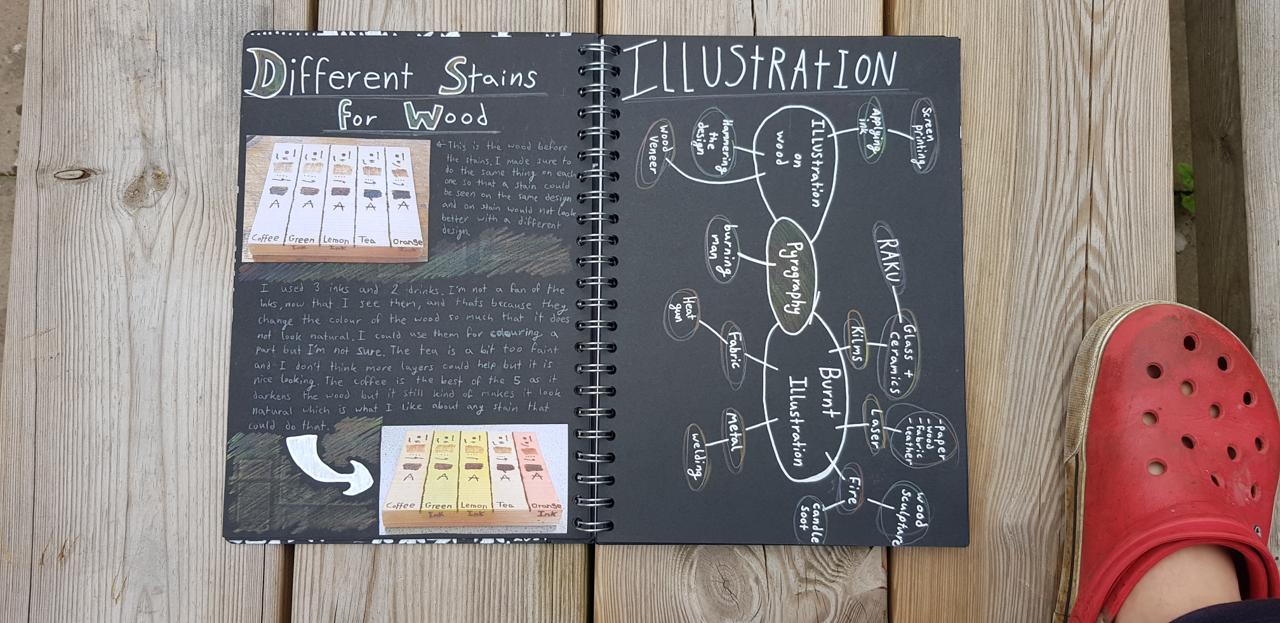 Different Stains
for Wood
← This is the wood before
the stains. I made sure to
do the same thing on each
one so that a stain could
be seen on the same design
and on stain would not look
better with a different
design.
A A A A A
Coffee Green Lemon Tea Orange
Ink Ink Ink
I used 3 inks and 2 drinks. I'm not a fan of the
inks, now that I see them, and thats because they
change the colour of the wood so much that it does
not look natural. I could use them for colouring a
part but I'm not sure. The tea is a bit too faint
and I don't think more layers could help but it is
nice looking. The coffee is the best of the 5 as it
darkens the wood but it still kind of makes it look
natural which is what I like about any stain that
could do that.
A A A A A
Coffee Green Lemon Tea Orange
Ink Ink Ink
ILLUStRAtION
Screen
printing
Applying
ink
Illustration
on
wood
Hammering
the
design
Wood
Veneer
Pyrography
burning
man
RAKU
Glass +
Ceramics
Kilms
Burnt
Illustration
Fabric
Heat
gun
Metal
welding
Laser
-Paper
-Wood
-Fabric
-Leather
Fire
wood
Sculpture
candle
Soot